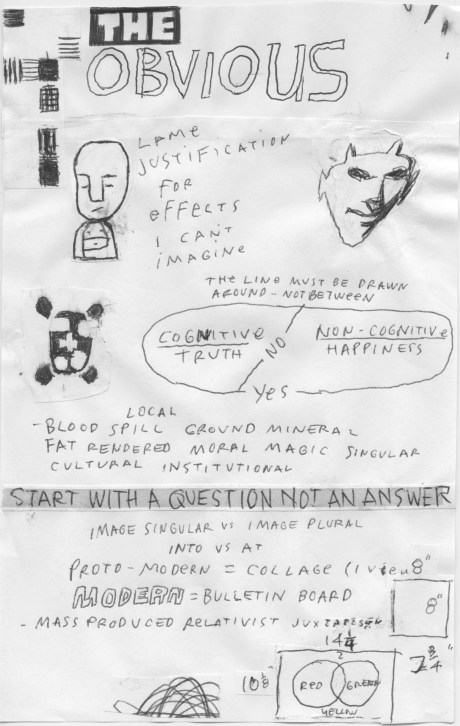 THE
OBVIOUS
LAME
JUSTIFICATION
FOR
EFFECTS
I CANT
IMAGINE
THE LINE MUST BE DRAWN
AROUND - NOT BETWEEN
COGNITIVE
TRUTH
NO
NON-COGNITIVE
HAPPINESS
YES
LOCAL
- BLOOD SPILL GROUND MINERAL
FAT RENDERED MORAL MAGIC SINGULAR
CULTURAL INSTITUTIONAL
START WITH A QUESTION NOT AN ANSWER
IMAGE SINGULAR VS IMAGE PLURAL
INTO VS AT
PROTO-MODERN = COLLAGE (I VIEW
8"
8"
MODERN = BULLETIN BOARD
- MASS PRODUCED RELATIVIST
14 1/4
2 3/4"
10 1/8"
2
RED
GREEN
YELLOW